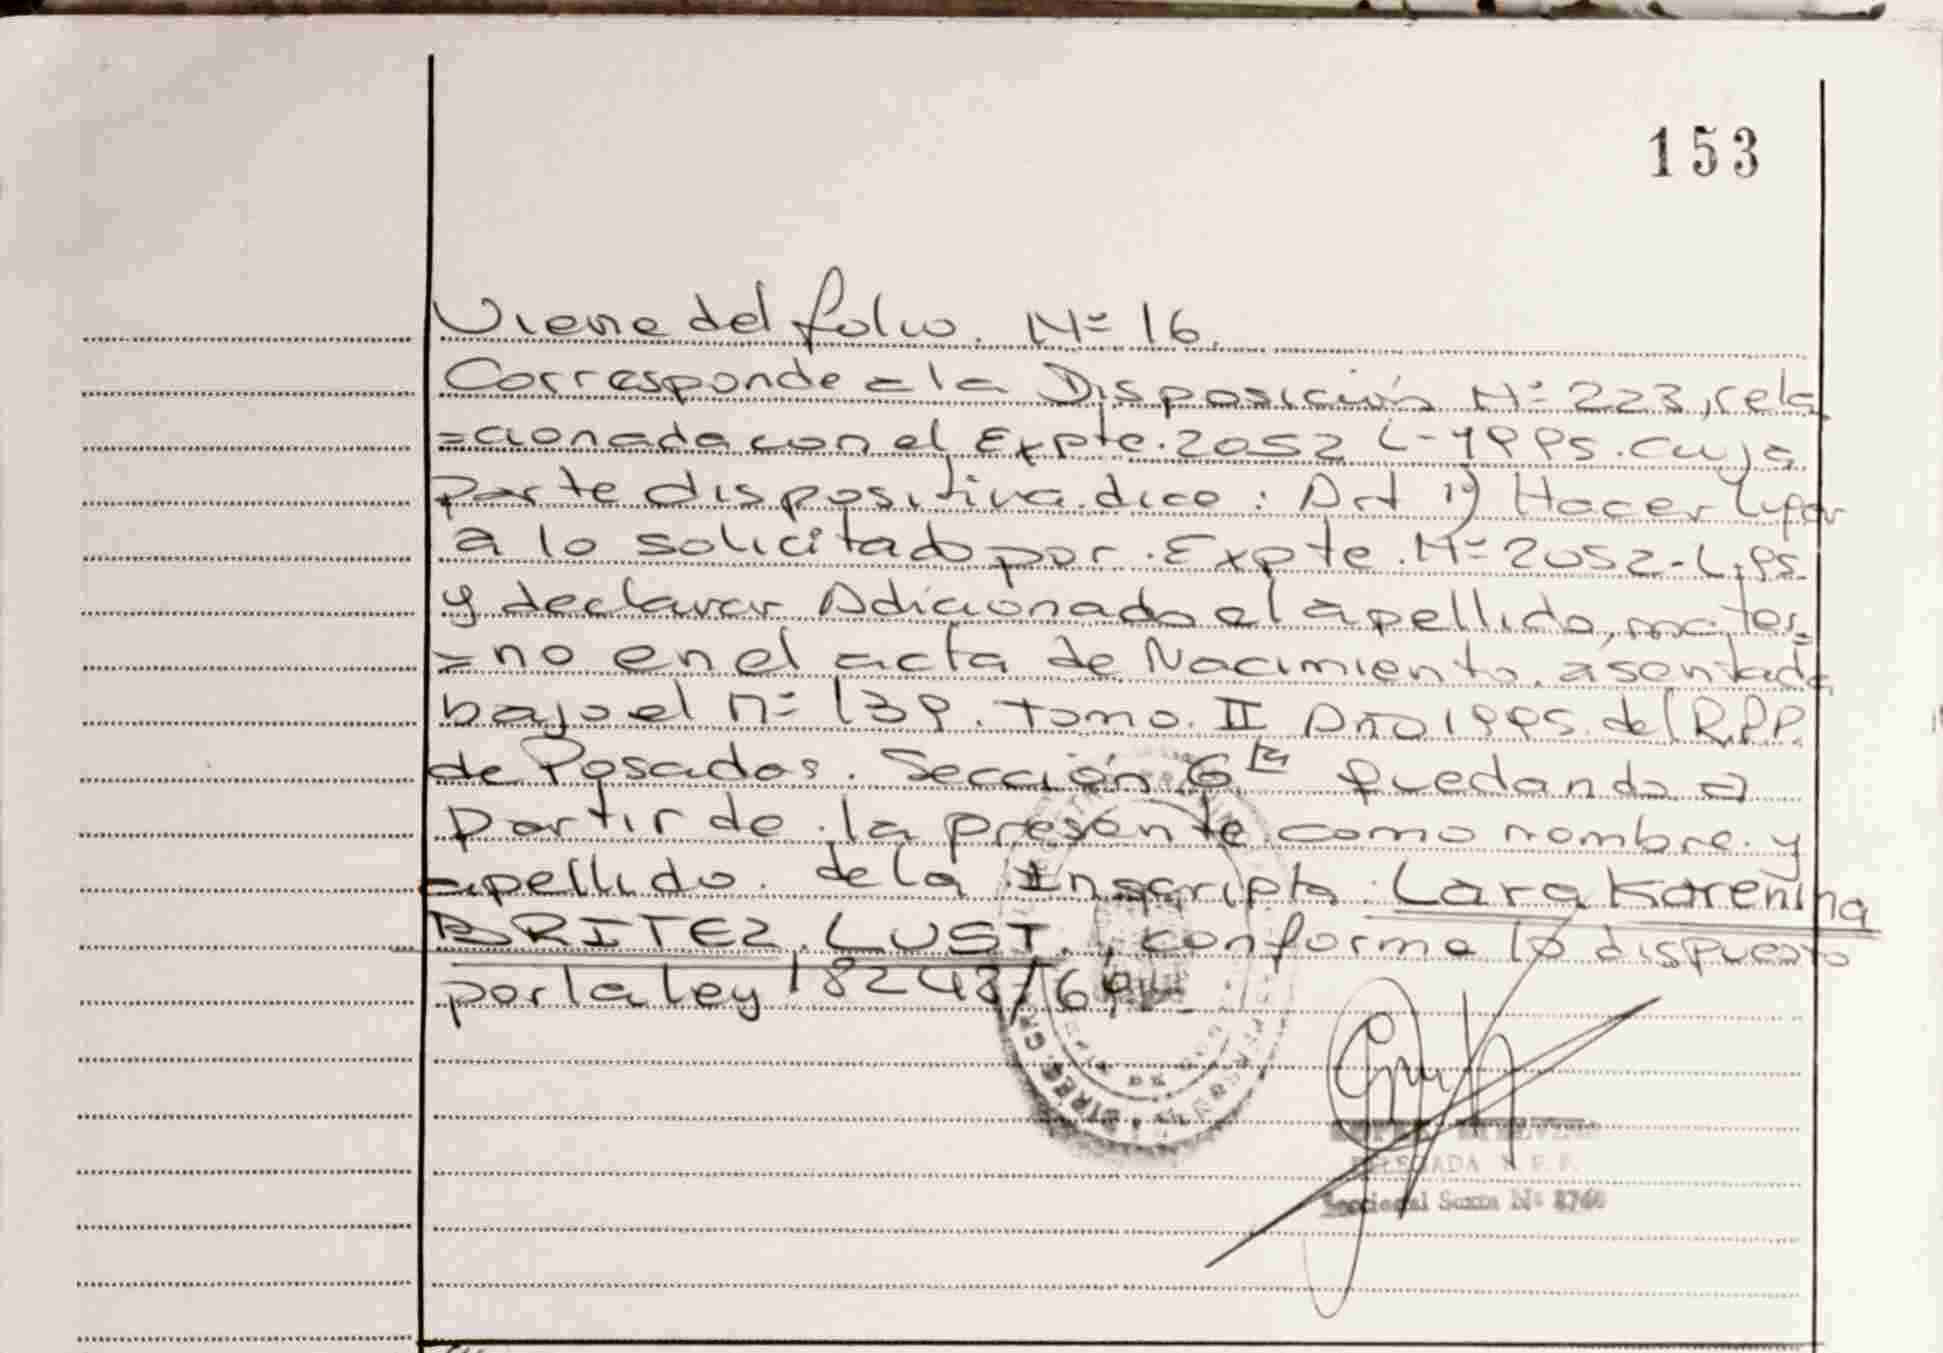 153
Viene del folio. Nº 16.
Corresponde a la Disposición Nº 223, rela
=cionada con el Expte. 2052 L-1995. cuya
parte dispositiva dice: Art 1º) Hacer lugar
a lo solicitado por Expte. Nº 2052-L-95.
y declarar Adicionado el apellido, mater=
=no en el acta de Nacimiento asentada
bajo el nº 139. Tomo. II Año 1995. del R.P.P.
de Posadas. Sección 6ta quedando a
partir de la presente como nombre y
apellido de la Inscripta Lara Karenina
BRITEZ LUST., conforme lo dispuesto
por la ley 18248/69.
DIREC. GR
DE
PERSONAS
DELEGADA R. P. P.
Seccional Sexta Nº